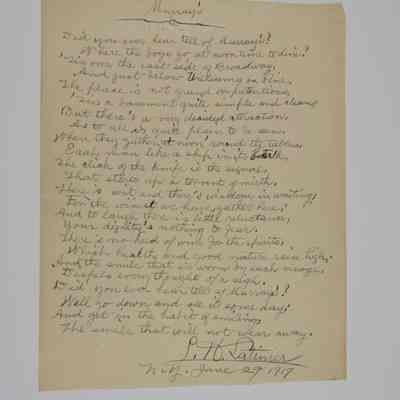 Murray's
Did you ever hear tell of Murray's?
Where the boys go at noontime to dine?
'Tis on the east side of Broadway,
And just below on Pine.
The place is not grand or pretentious,
'Tis a basement quite simple and clean,
But there's a very decided attraction
As to all is quite plain to be seen.
Where they gather at noon 'round the tables
Each man like a ship in its berth.
The click of the knife is the signal,
That stirs up a torrent of mirth.
There is wit and there's wisdom in waiting,
For the wisest in hope gather here;
And to laugh there is little reluctance,
Your dignity's nothing to fear.
There's no need of wine for the spirits
Which health and good nature raise high,
And the smile that is worn by each visage
Dispels even thought of a sigh.
Did you ever hear tell of Murray's?
Well go down and see it some day,
And get in the habit of smiling,
The smile that will not wear away.
L. H. Latimer
N.Y. June 29 1917